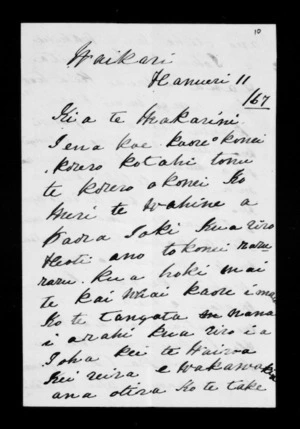 10
Waikari
Hanueri 11
/67
Kia te Makarini
Tena koe kaore o konei
korero kotahi tonu
te korero o konei Ko
Meri te Wahine a
Paora Toki Kua riro
Heoti ano to konei raru
raru. kua hoki mai
te kai Whai kaore i mau
Ko te tangata nana
i arahi kua riro i a
Ioha kei te Wairoa
Kei reira e Wakawakia
ana otira Ko te take